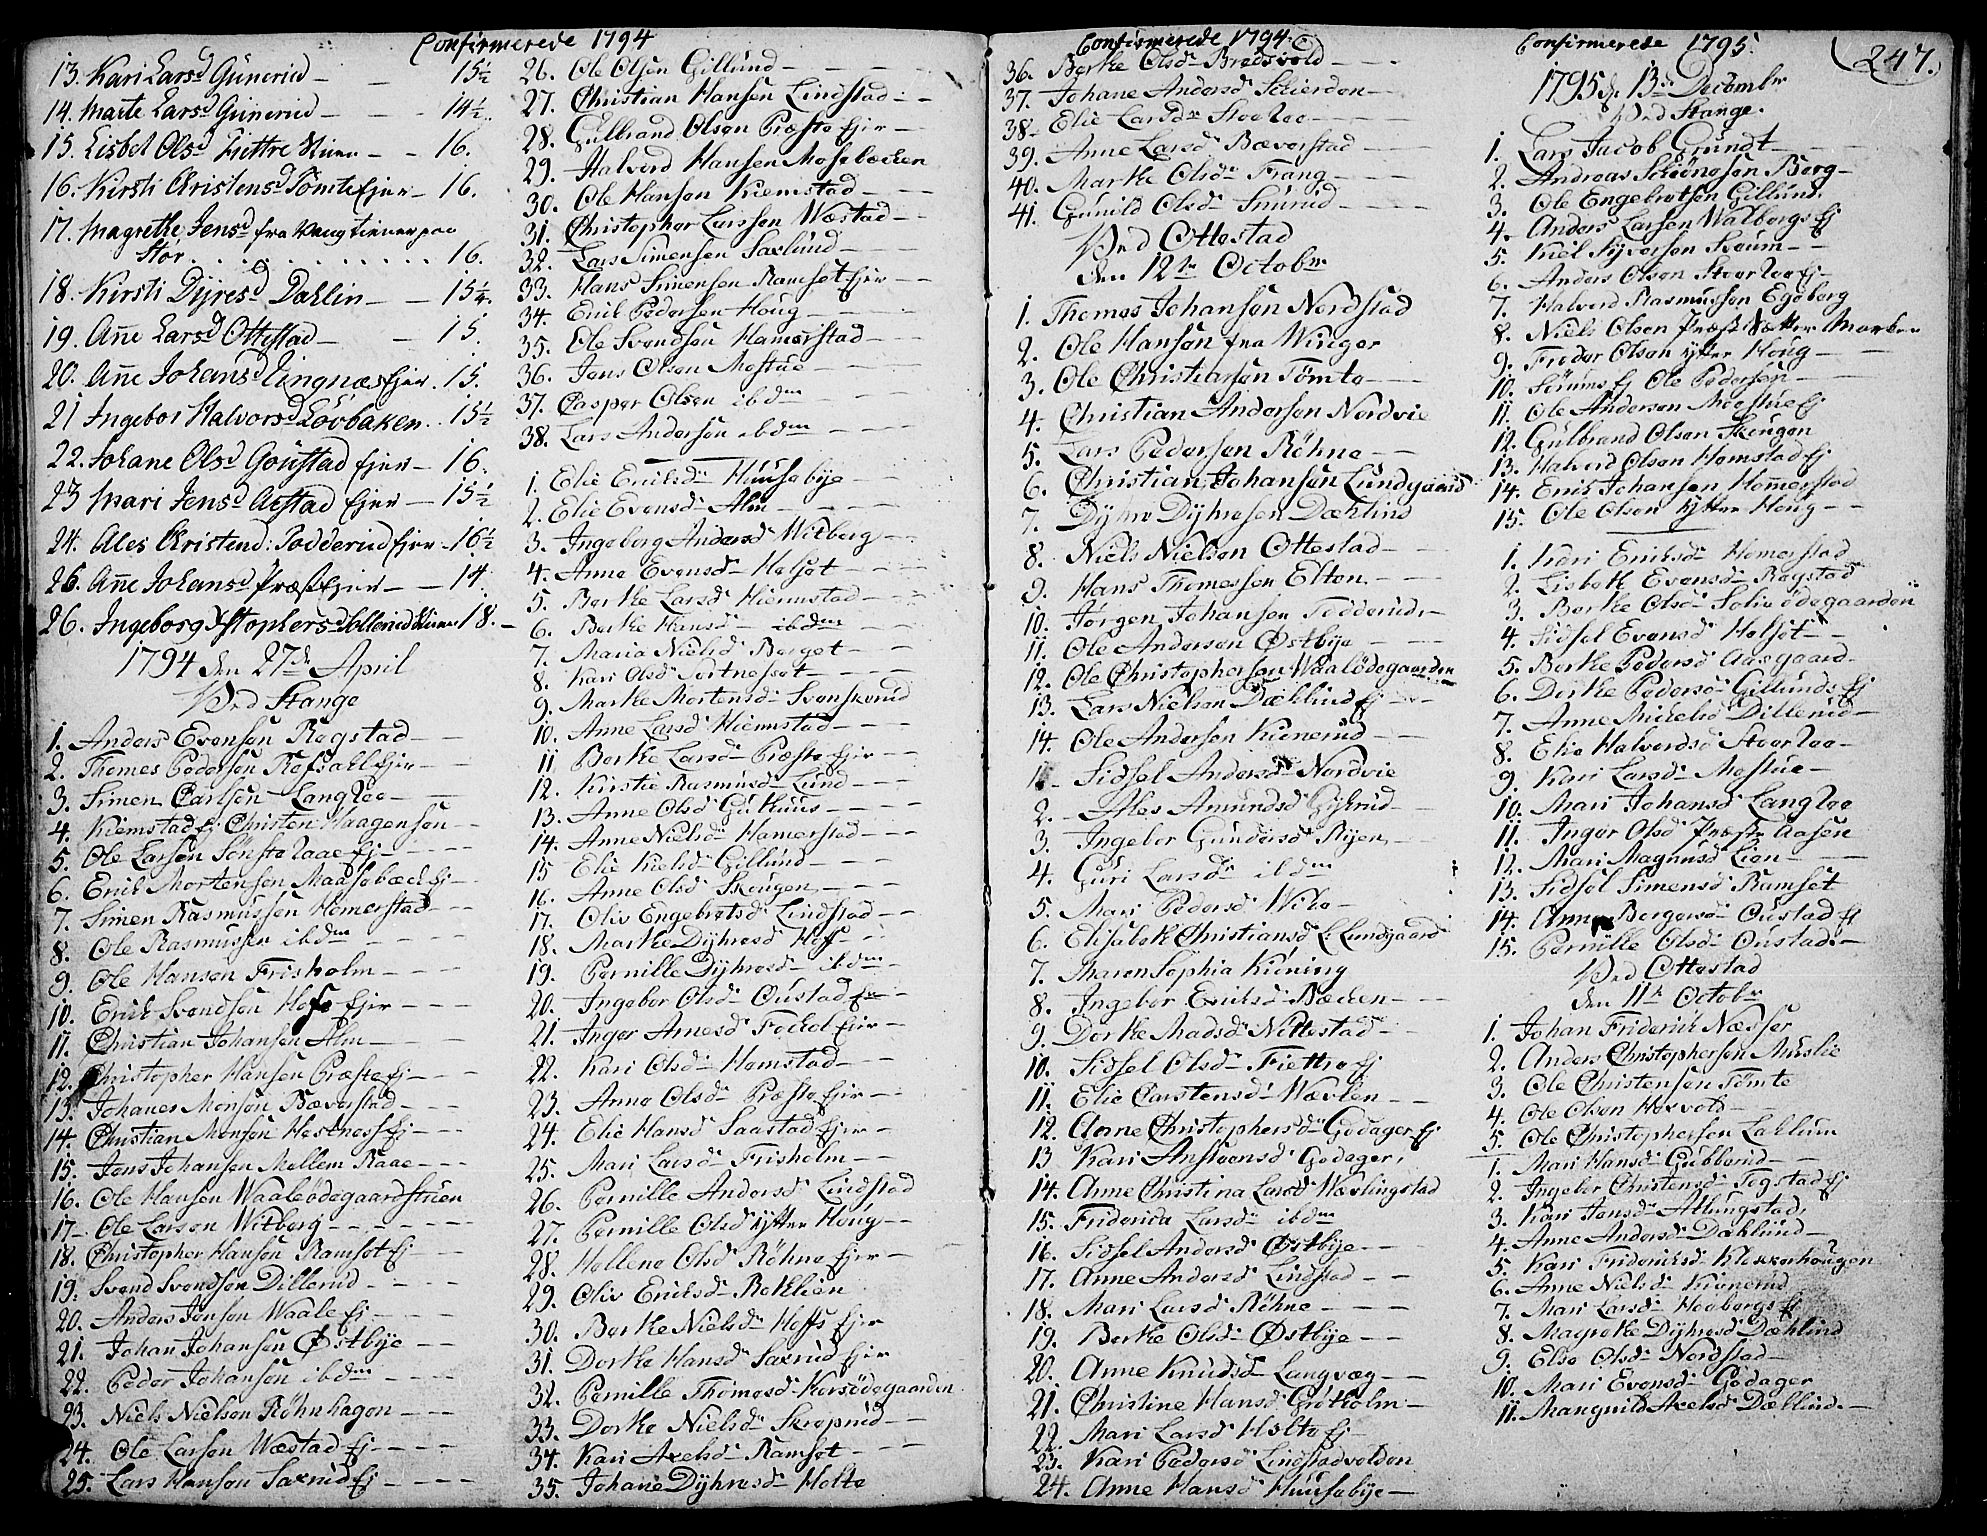 Confirmerede 1794
13. Kari Larsd Gunerud - - 15½
14. Marte Larsd Gunerud - - - 14½
15. Lisbet Olsd Fiettre Huun - - 16.
16. Kirsti Christensd Tomte Ejer - 16.
17. Magrethe Jensd fra Vang tiener paa
Stør . . . . . . . . . 16.
18. Kirsti Dyresd Dæhlin - - 15¼.
19. Añe Larsd Ottestad - - 15.
20. Añe Johansd Lingnæs Ejer. 15.
21 Ingebor Halvorsd Lövbaken . . 15½
22. Johane Olsd Goustad Ejer - 16.
23 Mari Jensd Arstad Ejer - 15½
24. Ales Christend: Todderud Ejer - 16½
26. Añe Johansd Præst Ejer - - 14.
26. Ingeborg Xstophersd 18. -
1794 den 27de April
Ved Stange
1. Anders Evensen Rogstad - -
2. Thomes Pedersen Refsahl Ejer - -
3. Simen Carlsen Langloe - -
4. Kiemstad Ej Christen Haagensen - -
5. Ole Larsen Sönsteraae Ej - - -
6. Erik Mortensen Maasebæck Ej -
7. Simen Rasmussen Homerstad - -
8. Ole Rasmussen ibdm - - - -
9. Ole Hansen Frisholm - - - -
10. Erik Svendsen Hofs Ejer - - -
11. Christian Johansen Alm - - - -
12. Christopher Hansen Præste Ej - - -
13. Johanes Monsen Bæverstad - - -
14. Christian Monsen Hestness Ej - -
15. Jens Johansen Mellem Raae - - -
16. Ole Hansen Waaleödegaard Stuen
17. Ole Larsen Witberg - - - - - -
18. Christopher Hansen Ramset Ej - -
19. Svend Svendsen Dillerud - - - -
20. Anders Jensen Waale Ej - - - -
21. Johan Johansen Østbye - - - -
22. Peder Johansen ibdm - - - -
23. Niels Nielsen Röhnhagen - - -
24. Ole Larsen Wæstad Ej - - - -
25. Lars Hansen Saxrud Ej - - - -
26. Ole Olsen Gillund - - - -
27. Christian Hansen Lindstad - -
28. Gulbrand Olsen Præste Ejer - -
29. Halvord Hansen Mosebæcken
30. Ole Hansen Kiemstad - - -
31. Christopher Larssen Wæstad - -
32. Lars Simensen Saxlund - - -
33. Hans Simensen Ramset Ejer - -
34. Erik Pedersen Houg - - - -
35. Ole Svendsen Hamerstad - - -
36. Jens Olsen Mostue - - - -
37. Casper Olsen ibdm - - -
38. Lars Andersen ibdm - - - -
1. Elie Eriksdr Huusebye - - -
2. Elie Evensd Alm - - - -
3. Ingeborg Andersd Witberg - -
4. Anne Evensd Helset - - - -
5. Berthe Larsd Hiemstad - - -
6. Berthe Hansd ibdm - - -
7. Maria Nielsd Berget - - -
8. Kari Olsd Sortneset - - - -
9. Marthe Mortensd Svenskerud
10. Anne Larsd Hiemstad - - -
11 Berthe Larsd Præste Ejer - -
12. Kirstie Rasmusd Lund - - -
13. Anne Olsd Guthuus - - - -
14. Anne Nielsd Hamerstad - - -
15 Elie Kielsd Gillund - - - -
16. Anne Olsd Skougen - - - -
17. Oliv Engebretsd Lindstad - -
18. Marthe Dyhresd Hoff - - -
19. Pernille Dyhresd ibdm - - -
20. Ingebor Olsd Oustad Ejr - -
21. Inger Arnesd Fockel Ejer - -
22. Kari Olsd Homstad - - -
23. Anne Olsd Præste Ejer - - -
24. Elie Hansd Saastad Ejer - -
25. Mari Larsd Frisholm - - -
26. Pernille Andersd Lindstad
27. Pernille Olsd ytter Houg - -
28. Hellene Olsd Röhne Ejer - -
29. Oliv Eriksd Rothlien
30. Berthe Nielsd Hoffs Ejer
31. Dorthe Hansd Saxrud Ejer
32. Pernille Thomesd Korsödegaarden
33. Dorthe Nielsd Skrepried - -
34. Kari Axelsd Ramset - - -
35. Johane Dyhresd Holte
Confirmerede 1794.
36. Berthe Olsd Bredsvold - - -
37. Johane Andersd Skierden - -
38. Elie Larsdr Stoerloe - - -
39. Anne Larsd Bæverstad - - -
40. Marthe Olsd Frang - - -
41. Gunild Olsd Smerud - - -
Ved Ottestad
den 12te Octobr
1. Thomes Johansen Nordstad
2. Ole Hansen fra Winger
3. Ole Christiansen Tömte - - -
4. Christian Andersen Nordvie
5. Lars Pedersen Röhne - - -
6. Christian Johansen Lundgaard
7. Dyhre Dyhresen Dæhlind
8. Niels Nielsen Ottestad - - -
9. Hans Thomessen Elton - - -
10. Jörgen Johansen Tödderud -
11. Ole Andersen Østbye - - -
12. Ole Christophersen Waalödegaarden
13. Lars Nielsen Dæhlind Ej - - -
14. Ole Andersen Kienerud - - -
1. Sidsel Andersd Nordvie
2. Ales Amundsd Gyhrud - -
3. Ingebor Gundersd Ryen - -
4. Guri Larsdr ibdm
5. Mari Pedersd Wiko -
6. Elisabeth Christiansd L: Lundgaard
7. Maren Sophia Kiöning
8. Ingebor Eriksd Bæcken - - -
9. Dorthe Madsd Nittestad - - -
10. Sidsel Olsd Fiettre Ej
11. Elie Carstensd Wæxlen - - -
12. Anne Christophersd Godager Ej
13 Kari Anstvensd Godager
14. Anne Christina Larsd Wæxlingstad
15. Friderica Larsd ibdm
16. Sidsel Andersd Østbye - - -
17. Anne Andersd Lindstad - -
18. Mari Larsd Röhne - - - -
19. Berthe Olsd Østbye - - -
20. Anne Knudsd Langvæg - -
21. Christine Hansd Grötholm -
22. Mari Larsd Holte Ej - -
23. Kari Pedersd Lindstadvolden
24. Anne Hansd Huusebye - -
Confirmerede 1795.
247.
1795 d: 13de Decembr
Ved Stange.
1. Lars Jacob Grundt - - -
2. Andreas Schöngsen Berg -
3. Ole Engebretsen Gillund.
4. Anders Larsen Walbergs Ej
5. Kiel Syversen Skeum - -
6. Anders Olsen Stoerloe Ej -
7. Halvord Rasmussen Egeberg
8. Niels Olsen Præst Marken
9. Feder Olsen ytter Houg - - -
10. Sörums Ej Ole Pedersen - - -
11. Ole Andersen Moestue Ej
12. Gulbrand Olsen Skougen
13. Halvord Olsen Homstad Ej
14. Erik Johansen Homerstad
15. Ole Olsen ytter Houg - -
1. Kari Eriksd Homerstad
2. Lisbeth Evensd Rogstad
3. Berthe Olsd Solieödegaarden
4. Sidsel Evensd Helset - -
5. Berthe Pedersd Aasgaard -
6. Dorthe Pedersd Gillunds Ej
7. Anne Mickelsd Dillerud -
8. Elie Halvordsd Stoerloe -
9. Kari Larsd Mostue - -
10. Mari Johansd Langloe
11. Inger Olsd Præste Aasen
12. Mari Magnusd Lien - - -
13. Sidsel Simensd Ramset
14. Anne Bergersd Oustad Ej
15. Pernille Olsd Oustad. -
Ved Ottestad
den 11te Octobr
1. Johan Friderik Næsser
2. Anders Christophersen Muslie
3. Ole Christensen Tömte
4. Ole Olsen Hoxvold -
5. Ole Christophersen Laklum
1. Mari Hansd Gubberud - -
2. Ingebor Christensd Togstad Ej
3. Kari Jensd Atlungstad
4. Anne Andersd Dæhlind - -
5. Kari Fridericksd Klokkerhougen
6. Anne Nielsd Kiönerud
7. Mari Larsd Hoobergs Ej
8. Magrethe Dyhresd Dæhlind
9. Else Olsd Nordstad -
10. Mari Evensd Godager
11. Mangnild Axelsd Dæhlind. -